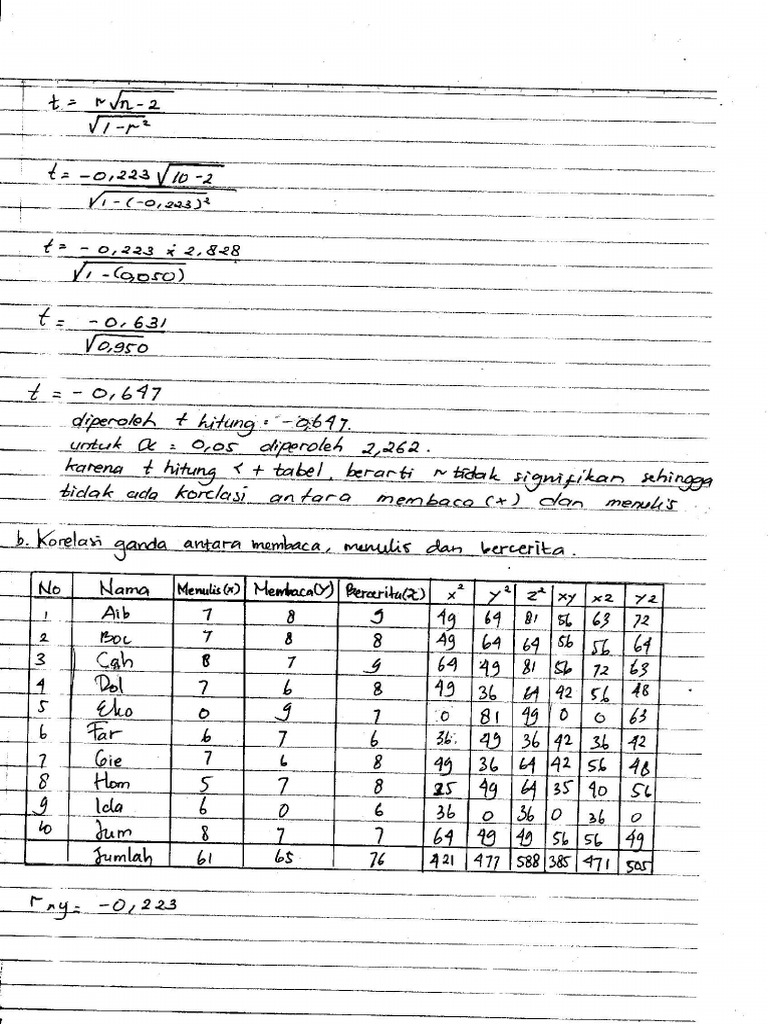 t = r√n-2
√1-r²
t = -0,223 √10-2
√1-(-0,223)²
t = -0,223 x 2,828
√1-(0,050)
t = -0,631
√0,950
t = -0,647
diperoleh t hitung = -0,647.
untuk α = 0,05 diperoleh 2,262.
karena t hitung < t tabel, berarti r tidak signifikan sehingga
tidak ada korelasi antara membaca (x) dan menulis
b. Korelasi ganda antara membaca, menulis dan bercerita.
No Nama Menulis(x) Membaca(Y) Bercerita(Z) x² y² z² xy xz yz
1 Aib 7 8 9 49 64 81 56 63 72
2 Boc 7 8 8 49 64 64 56 56 64
3 Cah 8 7 9 64 49 81 56 72 63
4 Dol 7 6 8 49 36 64 42 56 48
5 Eko 0 9 7 0 81 49 0 0 63
6 Far 6 7 6 36 49 36 42 36 42
7 Gie 7 6 8 49 36 64 42 56 48
8 Hom 5 7 8 25 49 64 35 40 56
9 Ida 6 0 6 36 0 36 0 36 0
10 Jum 8 7 7 64 49 49 56 56 49
Jumlah 61 65 76 421 477 588 385 471 505
rxy = -0,223